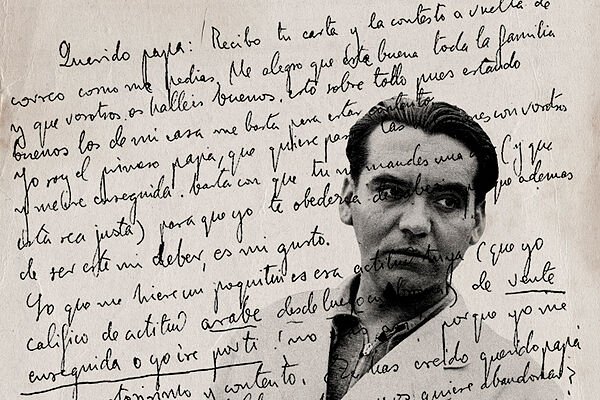 Querido papá: Recibo tu carta y la contesto a vuelta de
correo como me pedias. Me alegro que este buena toda la familia
y que vosotros os halleis buenos. Esto sobre todo pues estando
buenos los de mi casa me basta para estar contento
Yo soy el primero papá, que quiere pasar las con vosotros
y me ire enseguida. basta con que tu me mandes una (y que
esta sea justa) para que yo te obedezca además
de ser este mi deber, es mi gusto.
Yo que me hiere un poquitin es esa actitud tuya (que yo
califico de actitud arabe desde luego) de vente
enseguida o yo ire por ti! no porque yo me
y contento. has creido querido papá
quiere abandonar?